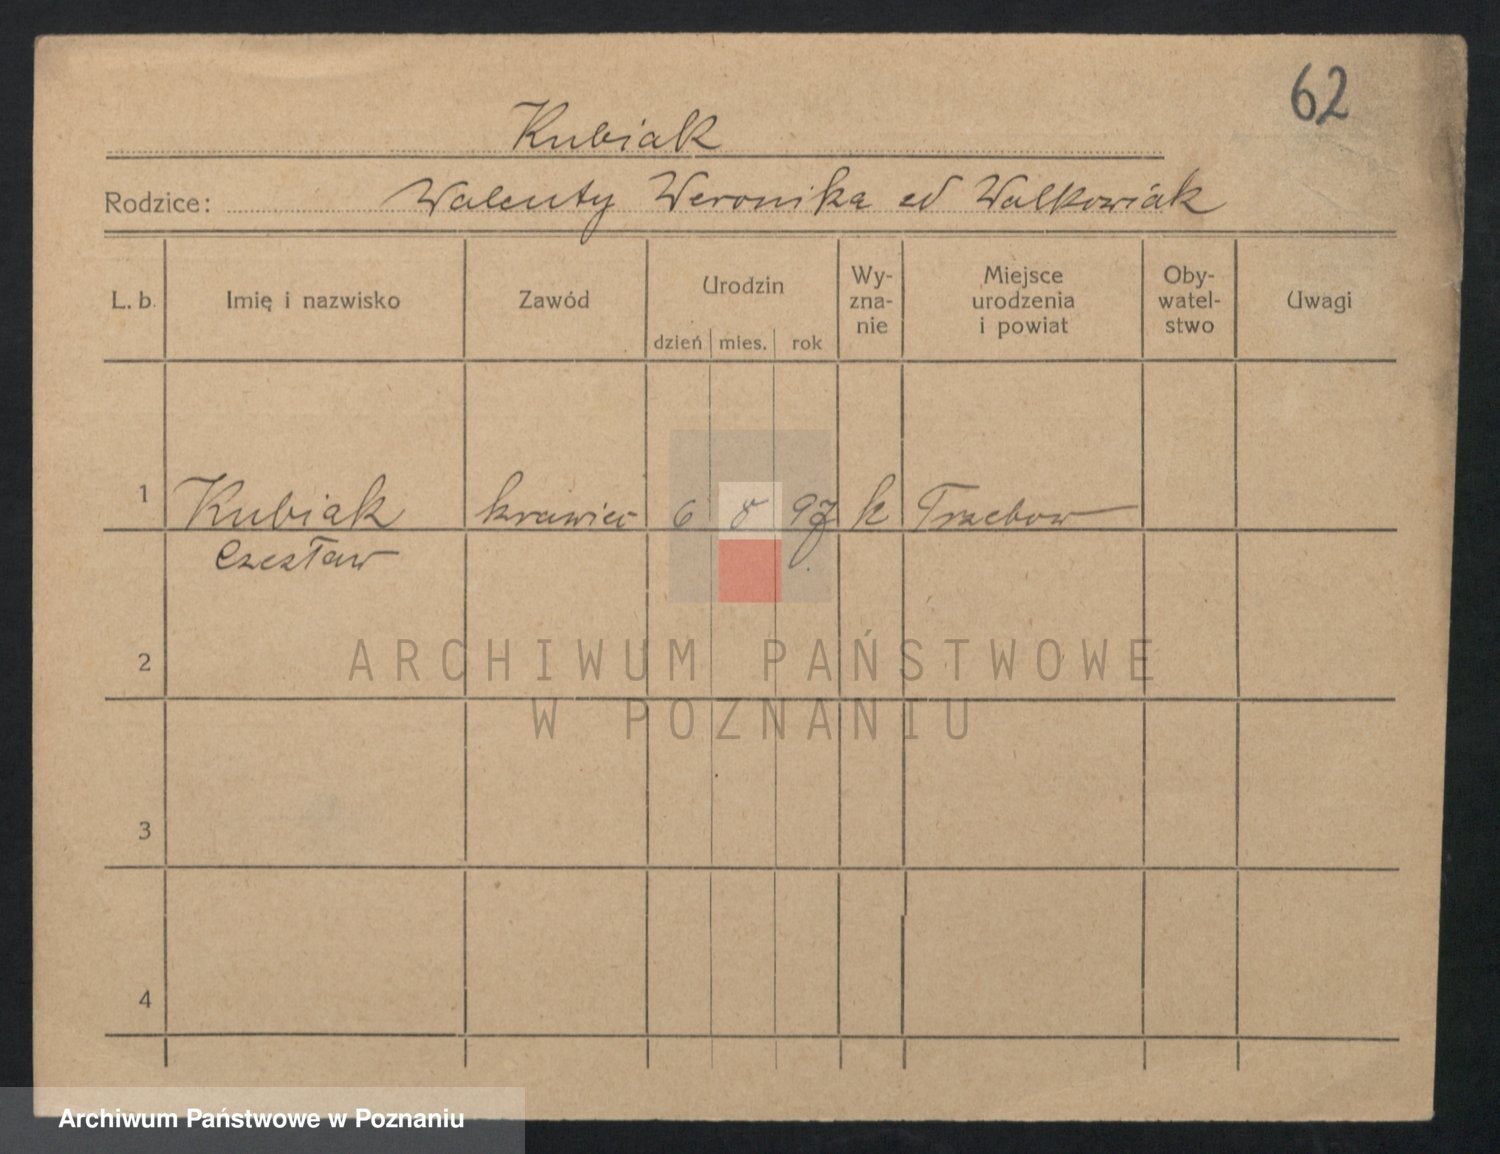 62
Kubiak
Rodzice: Walenty Weronika ed Walkowiak
L. b. Imię i nazwisko Zawód Urodzin dzień mies. rok Wy-zna-nie Miejsce urodzenia i powiat Oby-watel-stwo Uwagi
1 Kubiak krawiec 6 8 97 k Trzebow
Czesław
2
ARCHIWUM PAŃSTWOWE
W POZNANIU
3
4
Archiwum Państwowe w Poznaniu